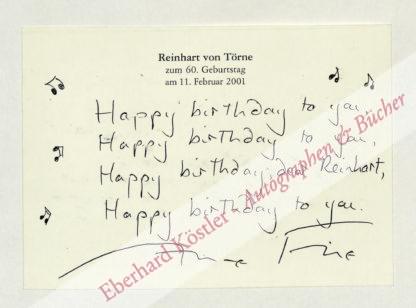 Reinhart von Törne
zum 60. Geburtstag
am 11. Februar 2001
Happy birthday to you,
Happy birthday to you,
Happy birthday, dear Reinhart,
Happy birthday to you.
Eberhard Köstler - Autographen & Bücher